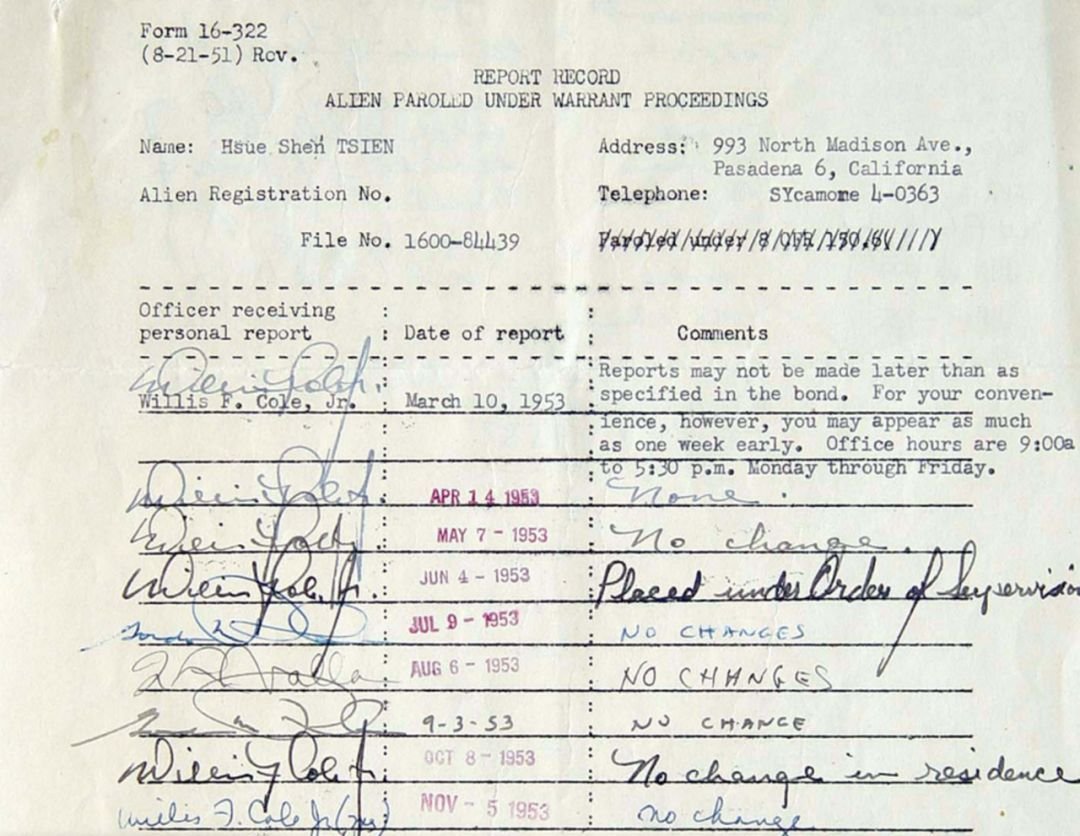 Form 16-322
(8-21-51) Rev.
REPORT RECORD
ALIEN PAROLED UNDER WARRANT PROCEEDINGS
Name: Hsue Shen TSIEN
Address: 993 North Madison Ave.,
Pasadena 6, California
Alien Registration No.
Telephone: SYcamore 4-0363
File No. 1600-84439
Paroled under 8 CFR 150.6
Officer receiving
personal report
Date of report
Comments
Willis F. Cole, Jr.
March 10, 1953
Reports may not be made later than as
specified in the bond. For your conven-
ience, however, you may appear as much
as one week early. Office hours are 9:00a
to 5:30 p.m. Monday through Friday.
APR 14 1953 None.
MAY 7 - 1953 No change.
JUN 4 - 1953 Placed under Order of Supervision
JUL 9 - 1953 NO CHANGES
AUG 6 - 1953 NO CHANGES
9-3-53 NO CHANGE
OCT 8 - 1953 No change in residence
Willis F. Cole Jr NOV - 5 1953 no change